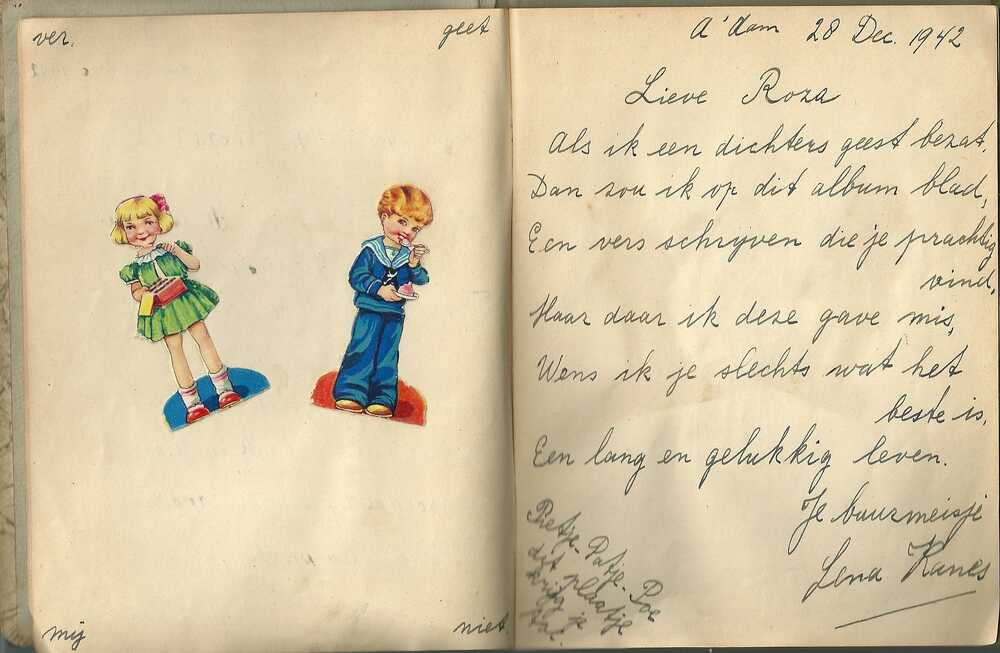 ver. geet
mij niet.
A'dam 28 Dec. 1942
Lieve Roza
Als ik een dichters geest bezat,
Dan zou ik op dit album blad,
Een vers schrijven die je prachtig
vind,
Maar daar ik deze gave mis,
Wens ik je slechts wat het
beste is,
Een lang en gelukkig leven.
Je buurmeisje
Lena Kanes
Pietje-Patje-Poe
dit plaatje
krijg je
toe.